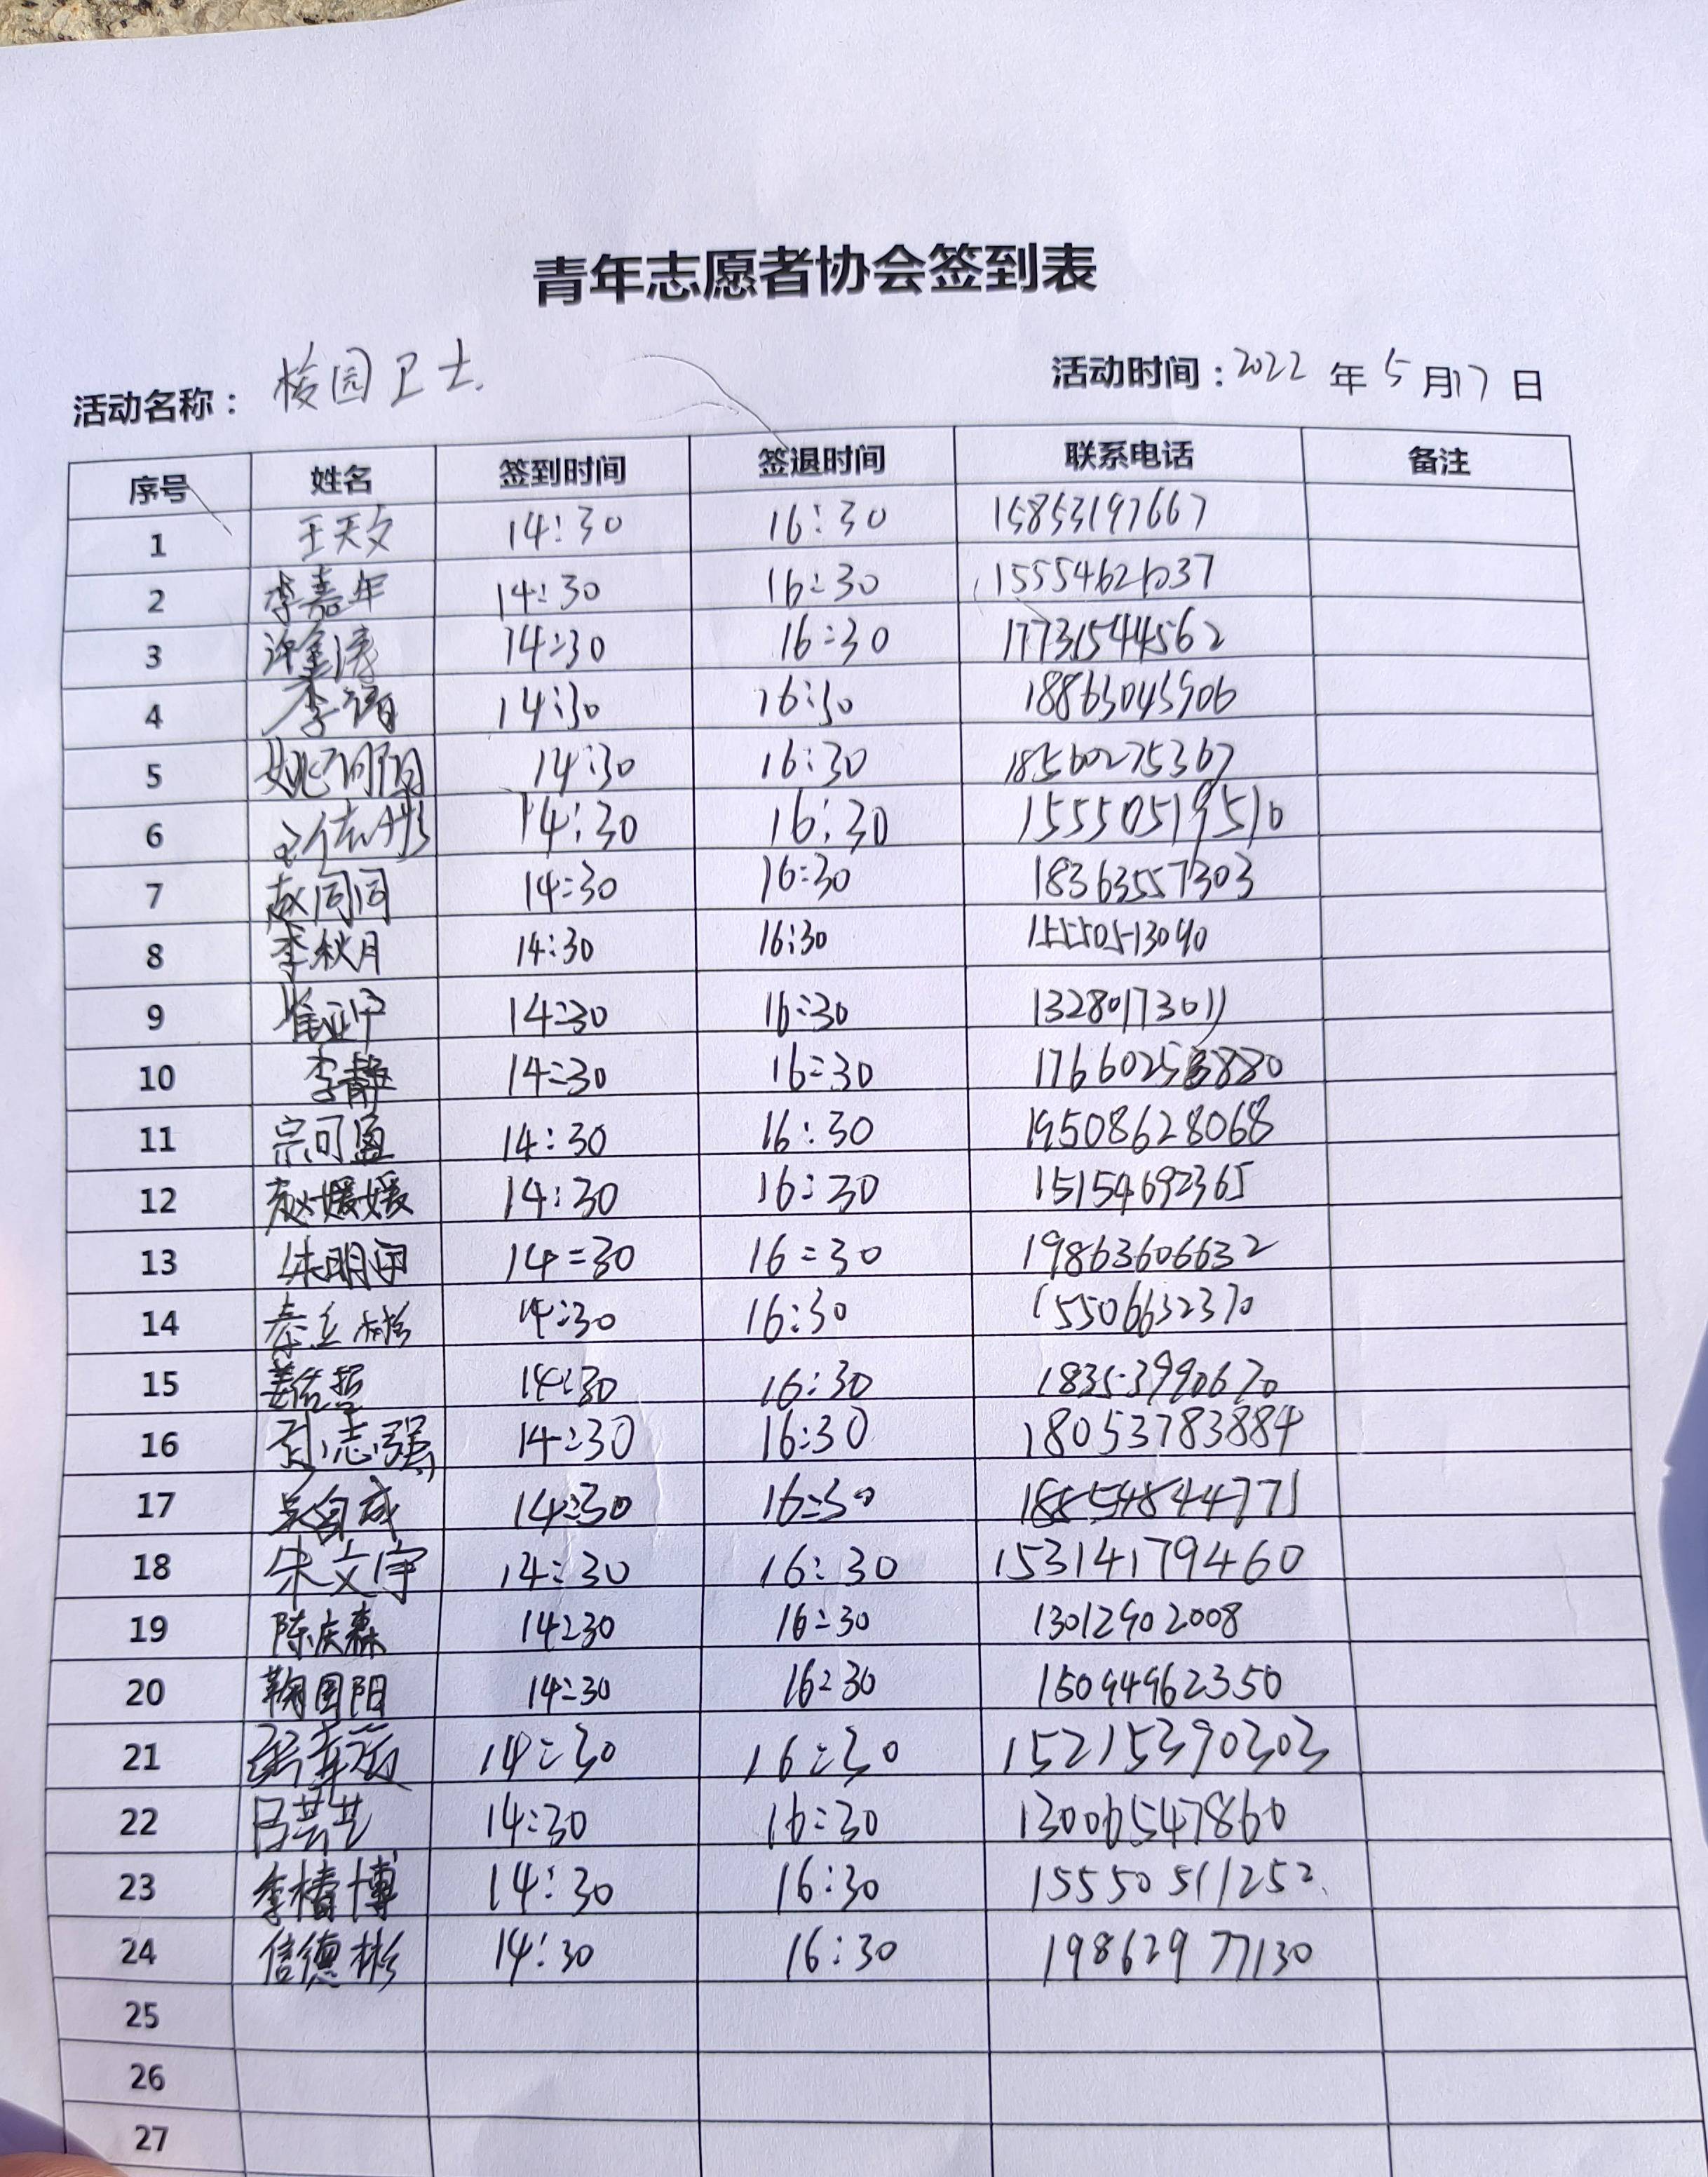 青年志愿者协会签到表
活动名称： 校园卫士 活动时间：2022 年 5 月 17 日
序号 姓名 签到时间 签退时间 联系电话 备注
1 王天文 14:30 16:30 15853197667
2 李嘉年 14:30 16:30 15554621037
3 14:30 16:30 17731544562
4 14:30 16:30 18863045906
5 14:30 16:30 18560275367
6 14:30 16:30 15550519510
7 赵同同 14:30 16:30 18363557303
8 李秋月 14:30 16:30 15550513090
9 14:30 16:30 13280173011
10 李静 14:30 16:30 17660258880
11 宗可盈 14:30 16:30 19508628068
12 赵媛媛 14:30 16:30 15154692365
13 朱明宇 14:30 16:30 19863606632
14 秦立彬 14:30 16:30 15506632370
15 姜信哲 14:30 16:30 18353990670
16 孙志强 14:30 16:30 18053783884
17 吴自成 14:30 16:30 18854844771
18 朱文宇 14:30 16:30 15314179460
19 陈庆森 14:30 16:30 13012902008
20 鞠国阳 14:30 16:30 15094962350
21 14:30 16:30 15215390303
22 吕芸芸 14:30 16:30 13006547860
23 李椿博 14:30 16:30 15550511252
24 信德彬 14:30 16:30 19862977130
25
26
27